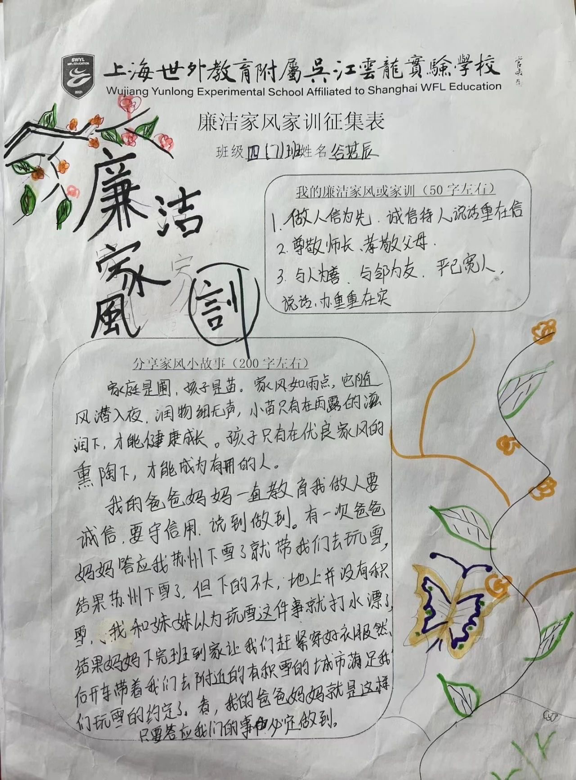 SWYL
上海世外教育附屬吳江雲龍實驗學校
Wujiang Yunlong Experimental School Affiliated to Shanghai WFL Education
廉洁家风家训征集表
班级 四(7)班 姓名
廉洁
家風
訓
我的廉洁家风或家训（50 字左右）
1. 做人信为先，诚信待人说话重在信
2. 尊敬师长、孝敬父母.
3. 与人为善，与邻为友，严己宽人，
说话、办事重在实
分享家风小故事（200 字左右）
家庭是圃，孩子是苗。家风如雨点，它随
风潜入夜，润物细无声，小苗只有在雨露的滋
润下，才能健康成长。孩子只有在优良家风的
熏陶下，才能成为有用的人。
我的爸爸妈妈一直教育我做人要
诚信，要守信用，说到做到。有一次爸爸
妈妈答应我苏州下雪了就带我们去玩雪，
结果苏州下雪了，但下的不大，地上并没有积
雪、我和妹妹以为玩雪这件事就打水漂了，
结果妈妈下完班到家让我们赶紧穿好衣服然
后开车带着我们去附近的有积雪的城市满足我
们玩雪的约定了。看，我的爸爸妈妈就是这样
只要答应我们的事必定做到。